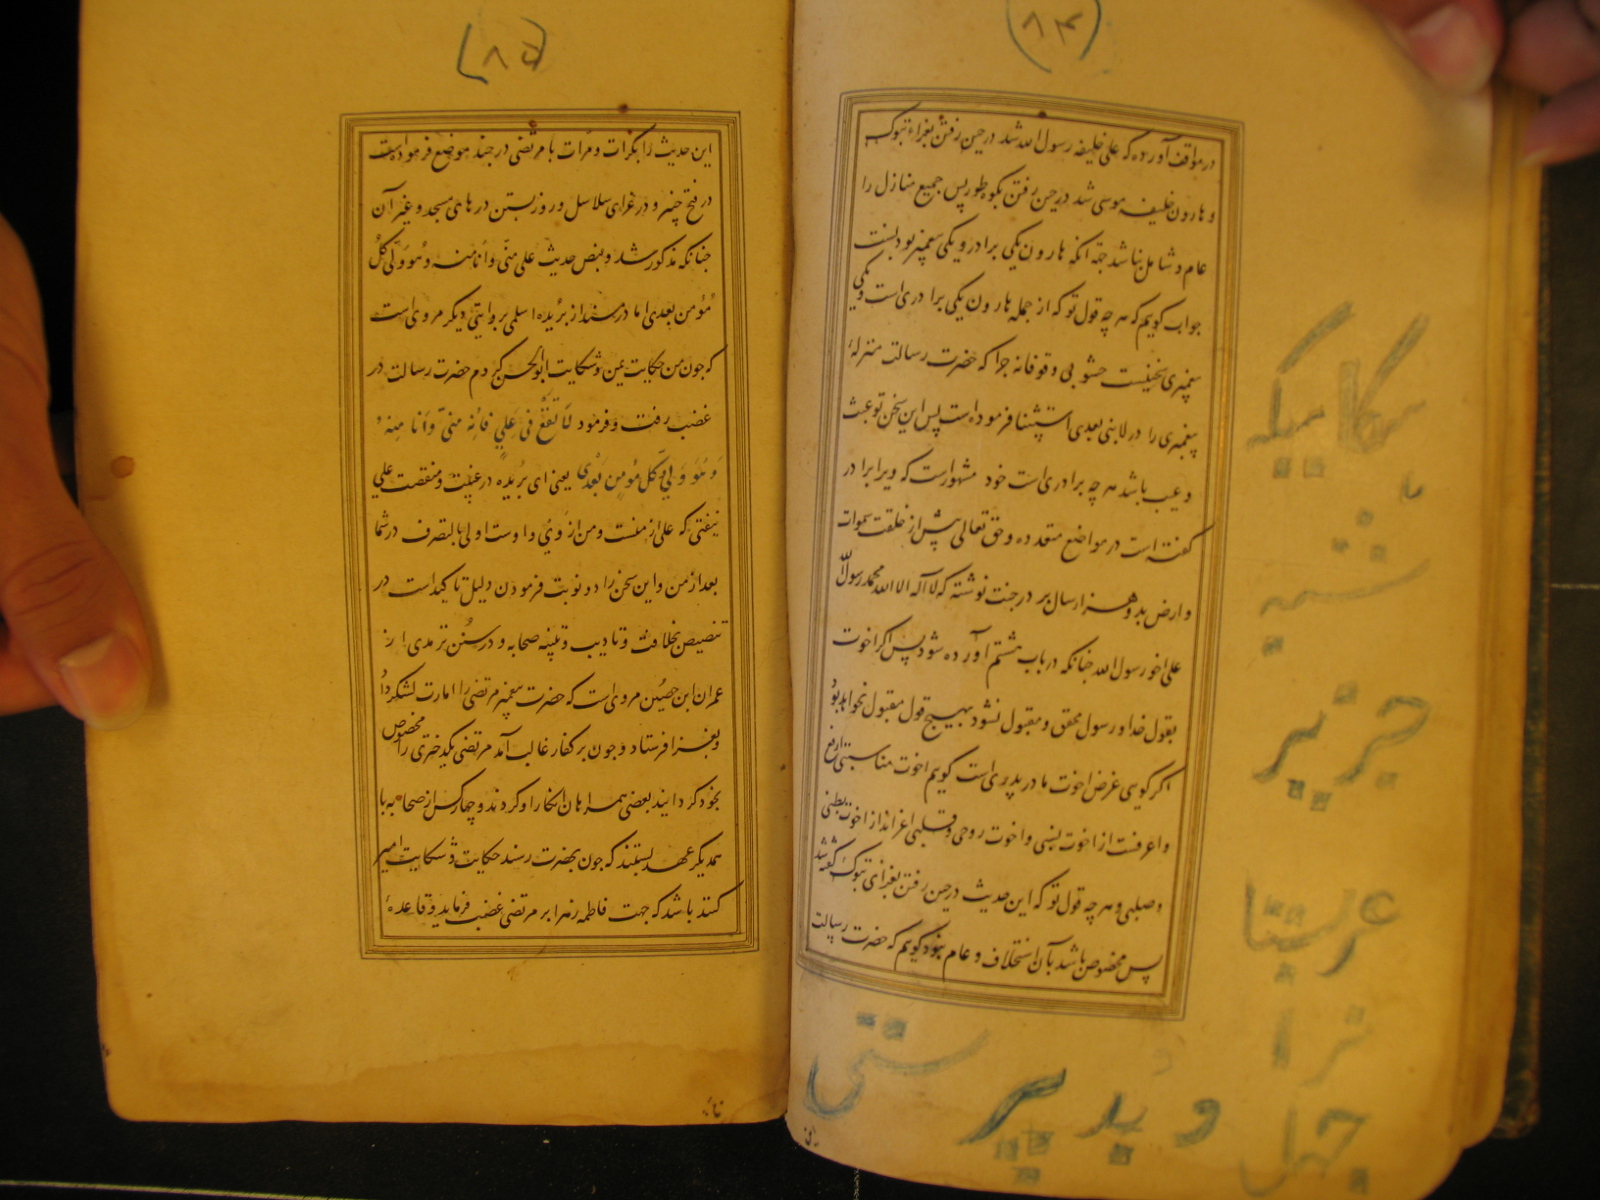 (۸۴)
در مواقف آورده که علی خلیفه رسول الله شد در حین رفتن بغزاء تبوک
و هارون خلیفه موسی شد در حین رفتن بکوه طور پس جمیع منازل را
عام و شامل نباشد جه آنکه هارون یکی برادر و یکی پیغمبر بودنست
جواب کویم که هر چه قول تو که از جمله هارون یکی برادری است و یکی
پیغمبری سخنیست حشو بی وقوفانه جرا که حضرت رسالت منزلهٔ
پیغمبری را در لا نبی بعدی استثنا فرموده است پس این سخن تو عبث
و عیب باشد هر چه برادری است خود مشهور است که ویرا برادر
کفته است در مواضع متعدده و حق تعالی پیش از خلقت سموات
و ارض بدو هزار سال بر در جنت نوشته که لا اله الا الله محمد رسول الله
علی اخو رسول الله جنانکه در باب هشتم آورده شود پس اکر اخوت
بقول خدا و رسول محقق و مقبول نشود بهیچ قول مقبول نخواهد بود
اکر کویی غرض اخوت مادر پدری است کویم اخوت مناسبتی ارفع
و اعرفست از اخوت نسبی و اخوت روحی و قلبی اعز اند از اخوت بطنی
و صلبی و هر چه قول تو که این حدیث در حین رفتن بغزای تبوک کفته شد
پس مخصوص باشد بآن استخلاف و عام نبود کویم که حضرت رسالت
(۸۵)
این حدیث را بکرات و مرات با مرتضی در جند موضع فرموده است
در فتح خیبر و در غزای سلاسل و روز بستن درهای مسجد و غیر آن
جنانکه مذکور شد و بنص حدیث علی منّی و أنا منه و هو ولی کل
مؤمن بعدی اما در مسند از بریده اسلمی بروایتی دیگر مروی است
که جون من حکایت یمن و شکایت ابو الحسن کردم حضرت رسالت در
غضب رفت و فرمود لا تقع فی علی فانه منی و انا منه
و هو ولی کل مؤمن بعدی یعنی ای بریده در غیبت و منقصت علی
نیفتی که علی از منست و من از وی و اوست اولی بالتصرف در شما
بعد از من و این سخن را دو نوبت فرمودن دلیل تاکید است در
تنصیص خلافت و تادیب و تنبیه صحابه و در سنن ترمدی از
عمران ابن حصین مروی است که حضرت پیغمبر مرتضی را امارت لشکر داد
و بغزا فرستاد و جون بر کفار غالب آمد مرتضی یکدختری را مخصوص
بخود کردانید بعضی همراهان انکار او کردند و چهار کس از صحابه با
همدیگر عهد بستند که جون بحضرت رسند حکایت و شکایت امیر
کنند باشد که جهت فاطمه زهرا بر مرتضی غضب فرماید و قاعدهٔ